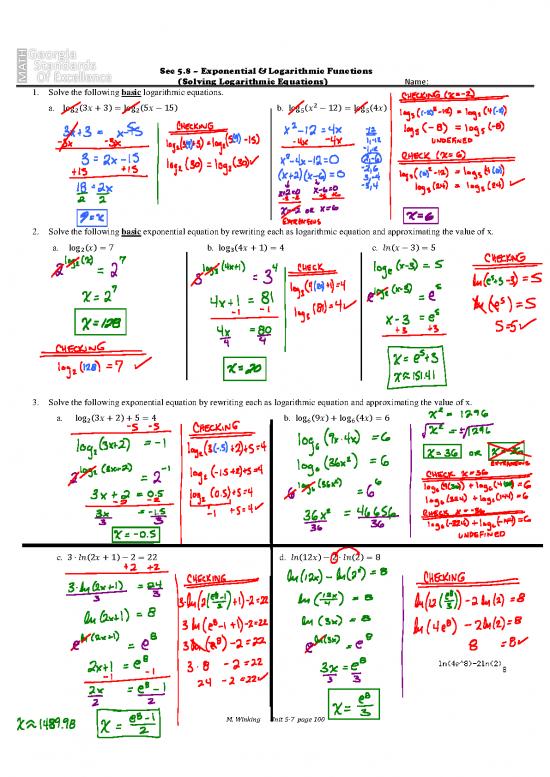 MATH Georgia
Standards
Of Excellence
Sec 5.8 – Exponential & Logarithmic Functions
(Solving Logarithmic Equations) Name:
1. Solve the following basic logarithmic equations.
a. log₂(3x + 3) = log₂(5x − 15)
b. log₅(x² − 12) = log₅(4x)
CHECKING (x=-2)
log₅((-2)²-12) = log₅(4(-2))
log₅(-8) = log₅(-8)
UNDEFINED
CHECK (x=6)
log₅((6)²-12) = log₅(4(6))
log₅(24) = log₅(24) ✓
x=6
3 = 2x-15
+15 +15
18 = 2x
2 2
9=x
CHECKING
log₂(30) = log₂(30) ✓
x²-12 = 4x
-4x -4x
x²-4x-12=0
(x+2)(x-6)=0
x+2=0 x-6=0
x=-2 or x=6
EXTRANEOUS
2. Solve the following basic exponential equation by rewriting each as logarithmic equation and approximating the value of x.
a. log₂(x) = 7
b. log₃(4x + 1) = 4
c. ln(x − 3) = 5
2^log₂(x) = 2⁷
x = 2⁷
x = 128
CHECKING
log₂(128) = 7 ✓
3^log₃(4x+1) = 3⁴
4x+1 = 81
-1 -1
4x = 80
4 4
x = 20
CHECK
log₃(4(20)+1)=4
log₃(81)=4 ✓
logₑ(x-3) = 5
e^logₑ(x-3) = e⁵
x-3 = e⁵
+3 +3
x = e⁵+3
x≈151.41
CHECKING
ln(e⁵+3-3)=5
ln(e⁵)=5
5=5 ✓
3. Solve the following exponential equation by rewriting each as logarithmic equation and approximating the value of x.
a. log₂(3x + 2) + 5 = 4
-5 -5
log₂(3x+2) = -1
2^log₂(3x+2) = 2⁻¹
3x+2 = 0.5
-2 -2
3x = -1.5
3 3
x = -0.5
CHECKING
log₂(3(-.5)+2)+5=4
log₂(-1.5+2)+5=4
log₂(0.5)+5=4
-1 +5=4 ✓
b. log₆(9x) + log₆(4x) = 6
log₆(9x·4x) = 6
log₆(36x²) = 6
6^log₆(36x²) = 6⁶
36x² = 46656
36 36
x² = 1296
√x² = ±√1296
x=36 or x=-36
EXTRANEOUS
CHECK x=36
log₆(9(36)) + log₆(4(36)) = 6
log₆(324) + log₆(144) = 6
CHECK x=-36
log₆(-324) + log₆(-144) = 6
UNDEFINED
c. 3 · ln(2x + 1) − 2 = 22
+2 +2
3·ln(2x+1) = 24
3 3
ln(2x+1) = 8
e^ln(2x+1) = e⁸
2x+1 = e⁸
-1 -1
2x = e⁸-1
2 2
x≈1489.98 x = e⁸-1
2
CHECKING
3·ln(2(e⁸-1/2)+1)-2=22
3 ln(e⁸-1+1)-2=22
3 ln(e⁸)-2=22
3·8 -2=22
24 -2=22 ✓
d. ln(12x) − 2 · ln(2) = 8
ln(12x) - ln(2²) = 8
ln(12x/4) = 8
ln(3x) = 8
e^ln(3x) = e⁸
3x = e⁸
3 3
x = e⁸
3
CHECKING
ln(12(e⁸/3)) - 2 ln(2) = 8
ln(4e⁸) - 2ln(2) = 8
8 = 8 ✓
ln(4e^8)-2ln(2)
8
M. Winking Unit 5-7 page 100